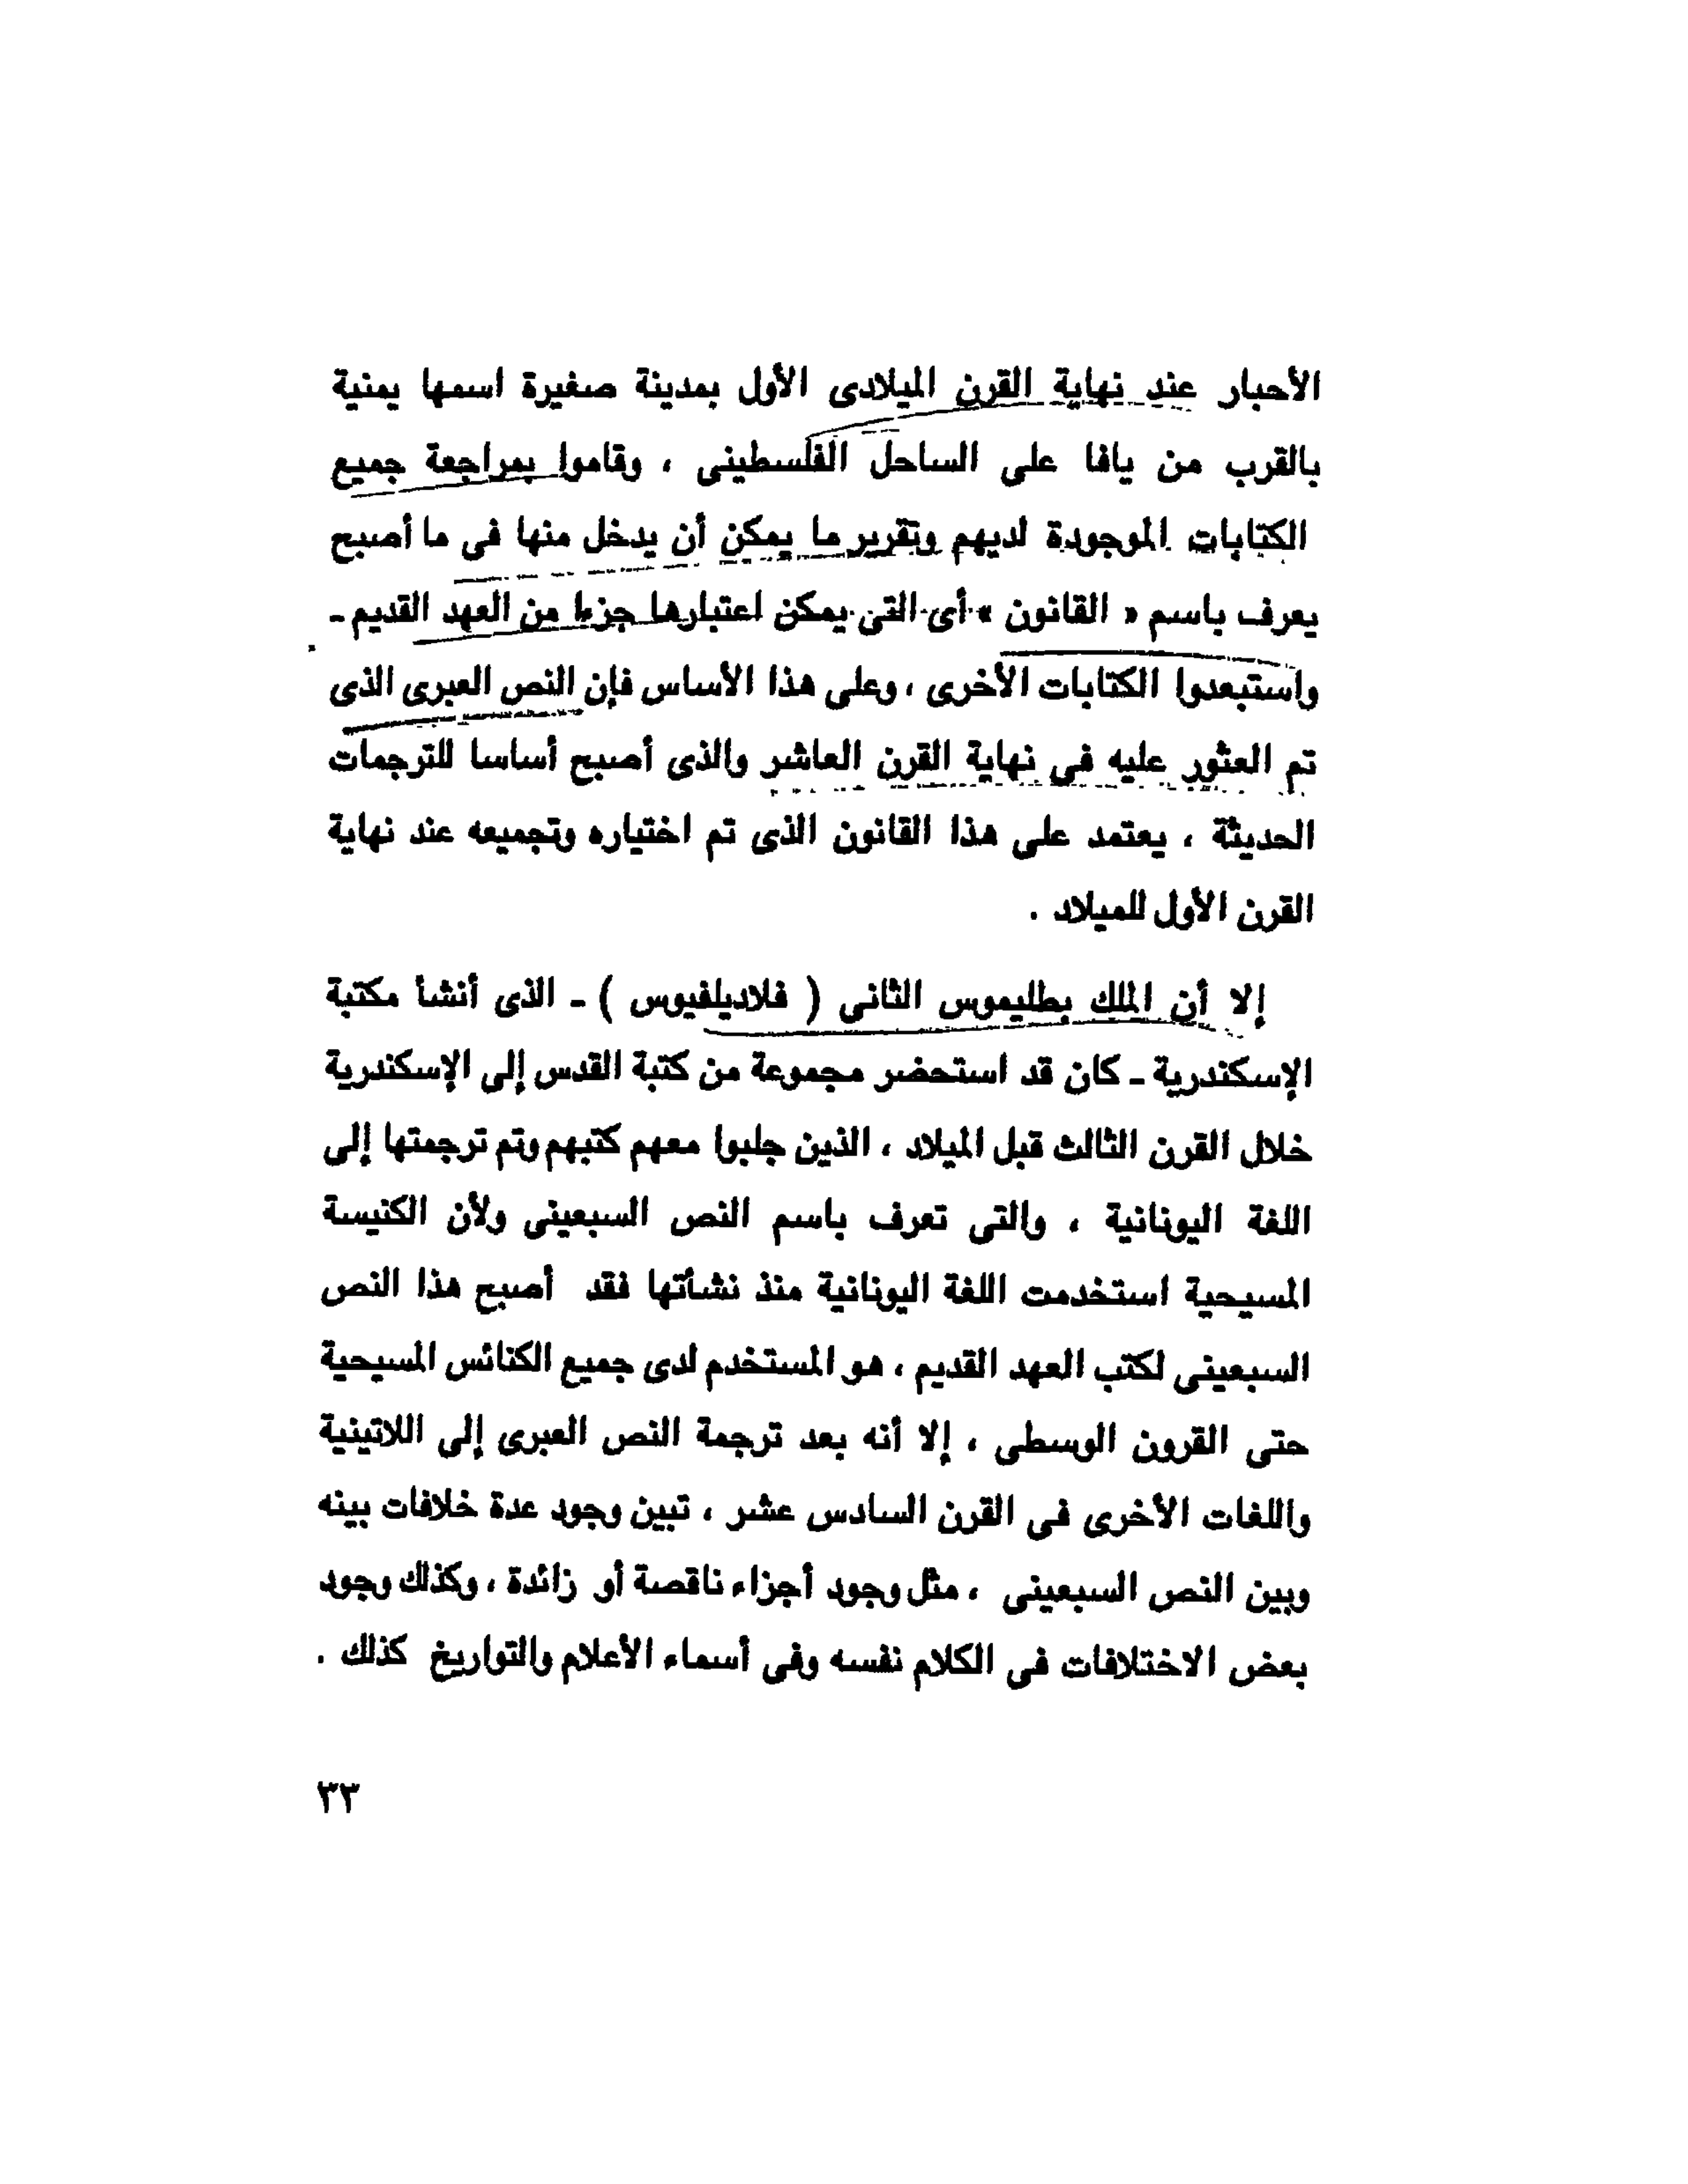 الأحبار عند نهاية القرن الميلادى الأول بمدينة صغيرة اسمها يمنية
بالقرب من يافا على الساحل الفلسطينى ، وقاموا بمراجعة جميع
الكتابات الموجودة لديهم وتقرير ما يمكن أن يدخل منها فى ما أصبح
يعرف باسم « القانون » أى التى يمكن اعتبارها جزءا من العهد القديم ـ
واستبعدوا الكتابات الأخرى ، وعلى هذا الأساس فإن النص العبرى الذى
تم العثور عليه فى نهاية القرن العاشر والذى أصبح أساسا للترجمات
الحديثة ، يعتمد على هذا القانون الذى تم اختياره وتجميعه عند نهاية
القرن الأول للميلاد .
إلا أن الملك بطليموس الثانى ( فلاديلفيوس ) ـ الذى أنشأ مكتبة
الإسكندرية ـ كان قد استحضر مجموعة من كتبة القدس إلى الإسكندرية
خلال القرن الثالث قبل الميلاد ، الذين جلبوا معهم كتبهم وتم ترجمتها إلى
اللغة اليونانية ، والتى تعرف باسم النص السبعينى ولأن الكنيسة
المسيحية استخدمت اللغة اليونانية منذ نشأتها فقد أصبح هذا النص
السبعينى لكتب العهد القديم ، هو المستخدم لدى جميع الكنائس المسيحية
حتى القرون الوسطى ، إلا أنه بعد ترجمة النص العبرى إلى اللاتينية
واللغات الأخرى فى القرن السادس عشر ، تبين وجود عدة خلافات بينه
وبين النص السبعينى ، مثل وجود أجزاء ناقصة أو زائدة ، وكذلك وجود
بعض الاختلافات فى الكلام نفسه وفى أسماء الأعلام والتواريخ كذلك .
٣٣